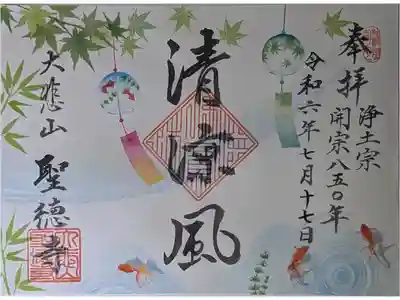 奉拝
浄土宗
開宗八五〇年
令和六年七月十七日
清涼風
大悲山
聖徳寺